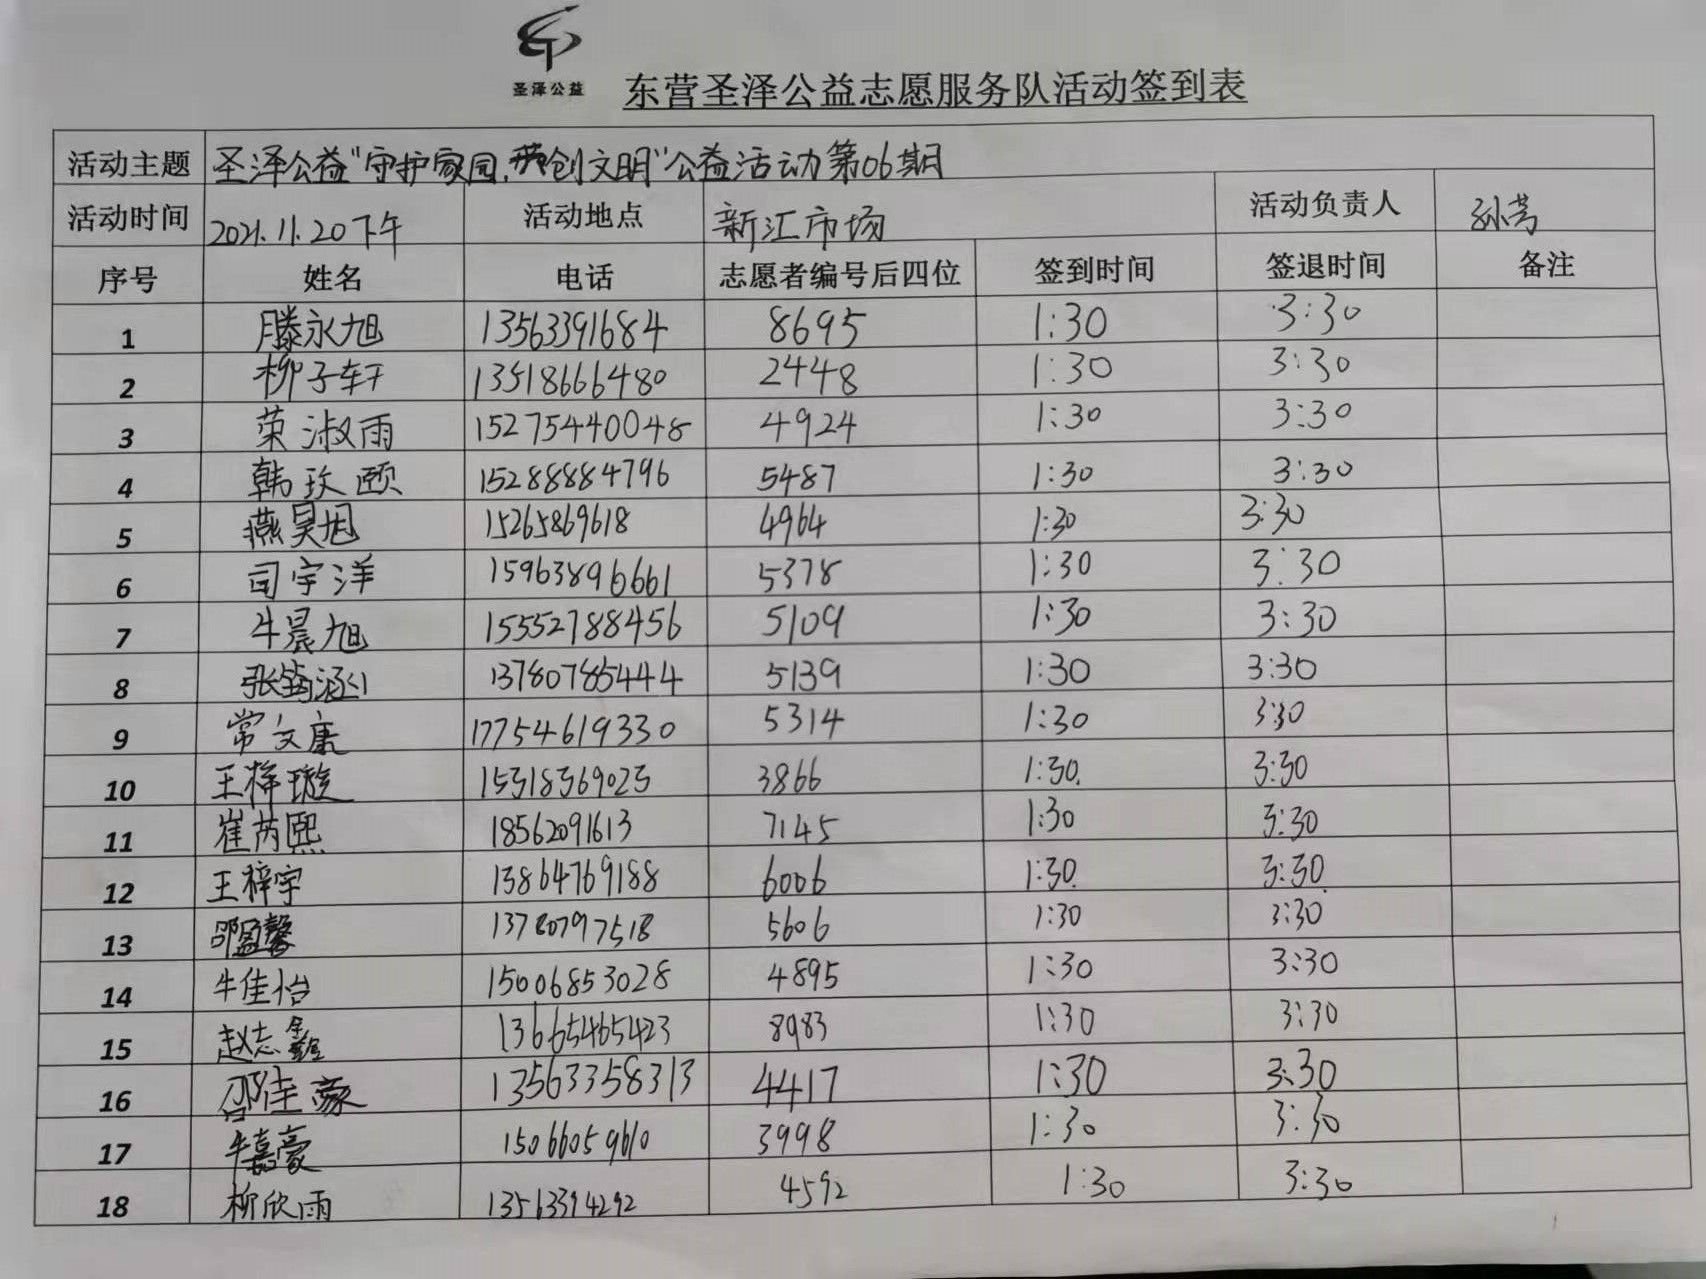 圣泽公益
东营圣泽公益志愿服务队活动签到表
活动主题 圣泽公益"守护家园,共创文明"公益活动第06期
活动时间 2021.11.20下午 活动地点 新汇市场 活动负责人 孙芳
序号 姓名 电话 志愿者编号后四位 签到时间 签退时间 备注
1 滕永旭 13563391684 8695 1:30 3:30
2 柳子轩 13518666480 2448 1:30 3:30
3 荣淑雨 15275440048 4924 1:30 3:30
4 韩玟颐 15288884796 5487 1:30 3:30
5 燕昊旭 15265869618 4964 1:30 3:30
6 司宇洋 15963896661 5378 1:30 3:30
7 牛晨旭 15552788456 5109 1:30 3:30
8 张筠涵 13780785444 5139 1:30 3:30
9 常文康 17754619330 5314 1:30 3:30
10 王梓璇 15318369023 3866 1:30 3:30
11 崔芮熙 18562091613 7145 1:30 3:30
12 王梓宇 13864769188 6006 1:30 3:30
13 邵盈馨 13780797518 5606 1:30 3:30
14 牛佳怡 15006853028 4895 1:30 3:30
15 赵志鑫 13665465423 8983 1:30 3:30
16 邵佳豪 13563358313 4417 1:30 3:30
17 牛嘉豪 15066059610 3998 1:30 3:30
18 柳欣雨 13563394292 4592 1:30 3:30